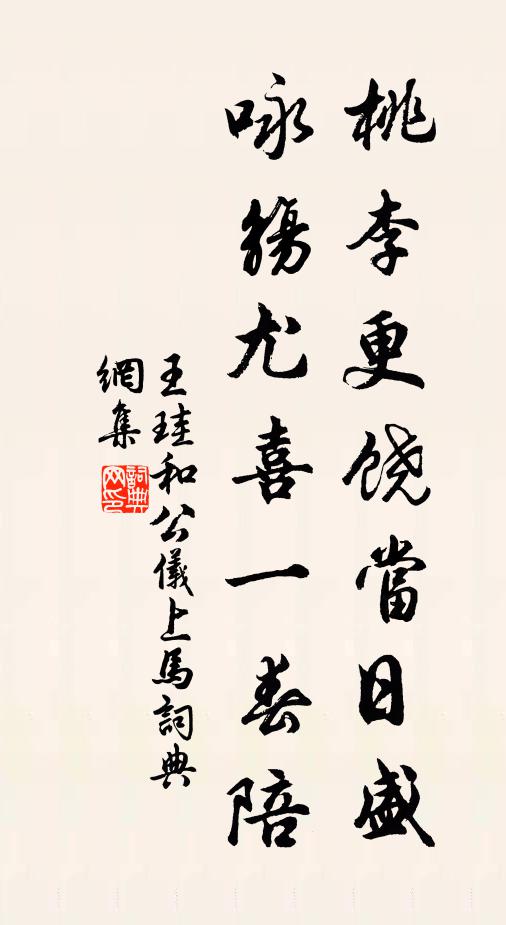 桃李更饶當日盛
咏觴尤喜一春陪
王珪和公儀上馬詞典
網集
詞典
网印